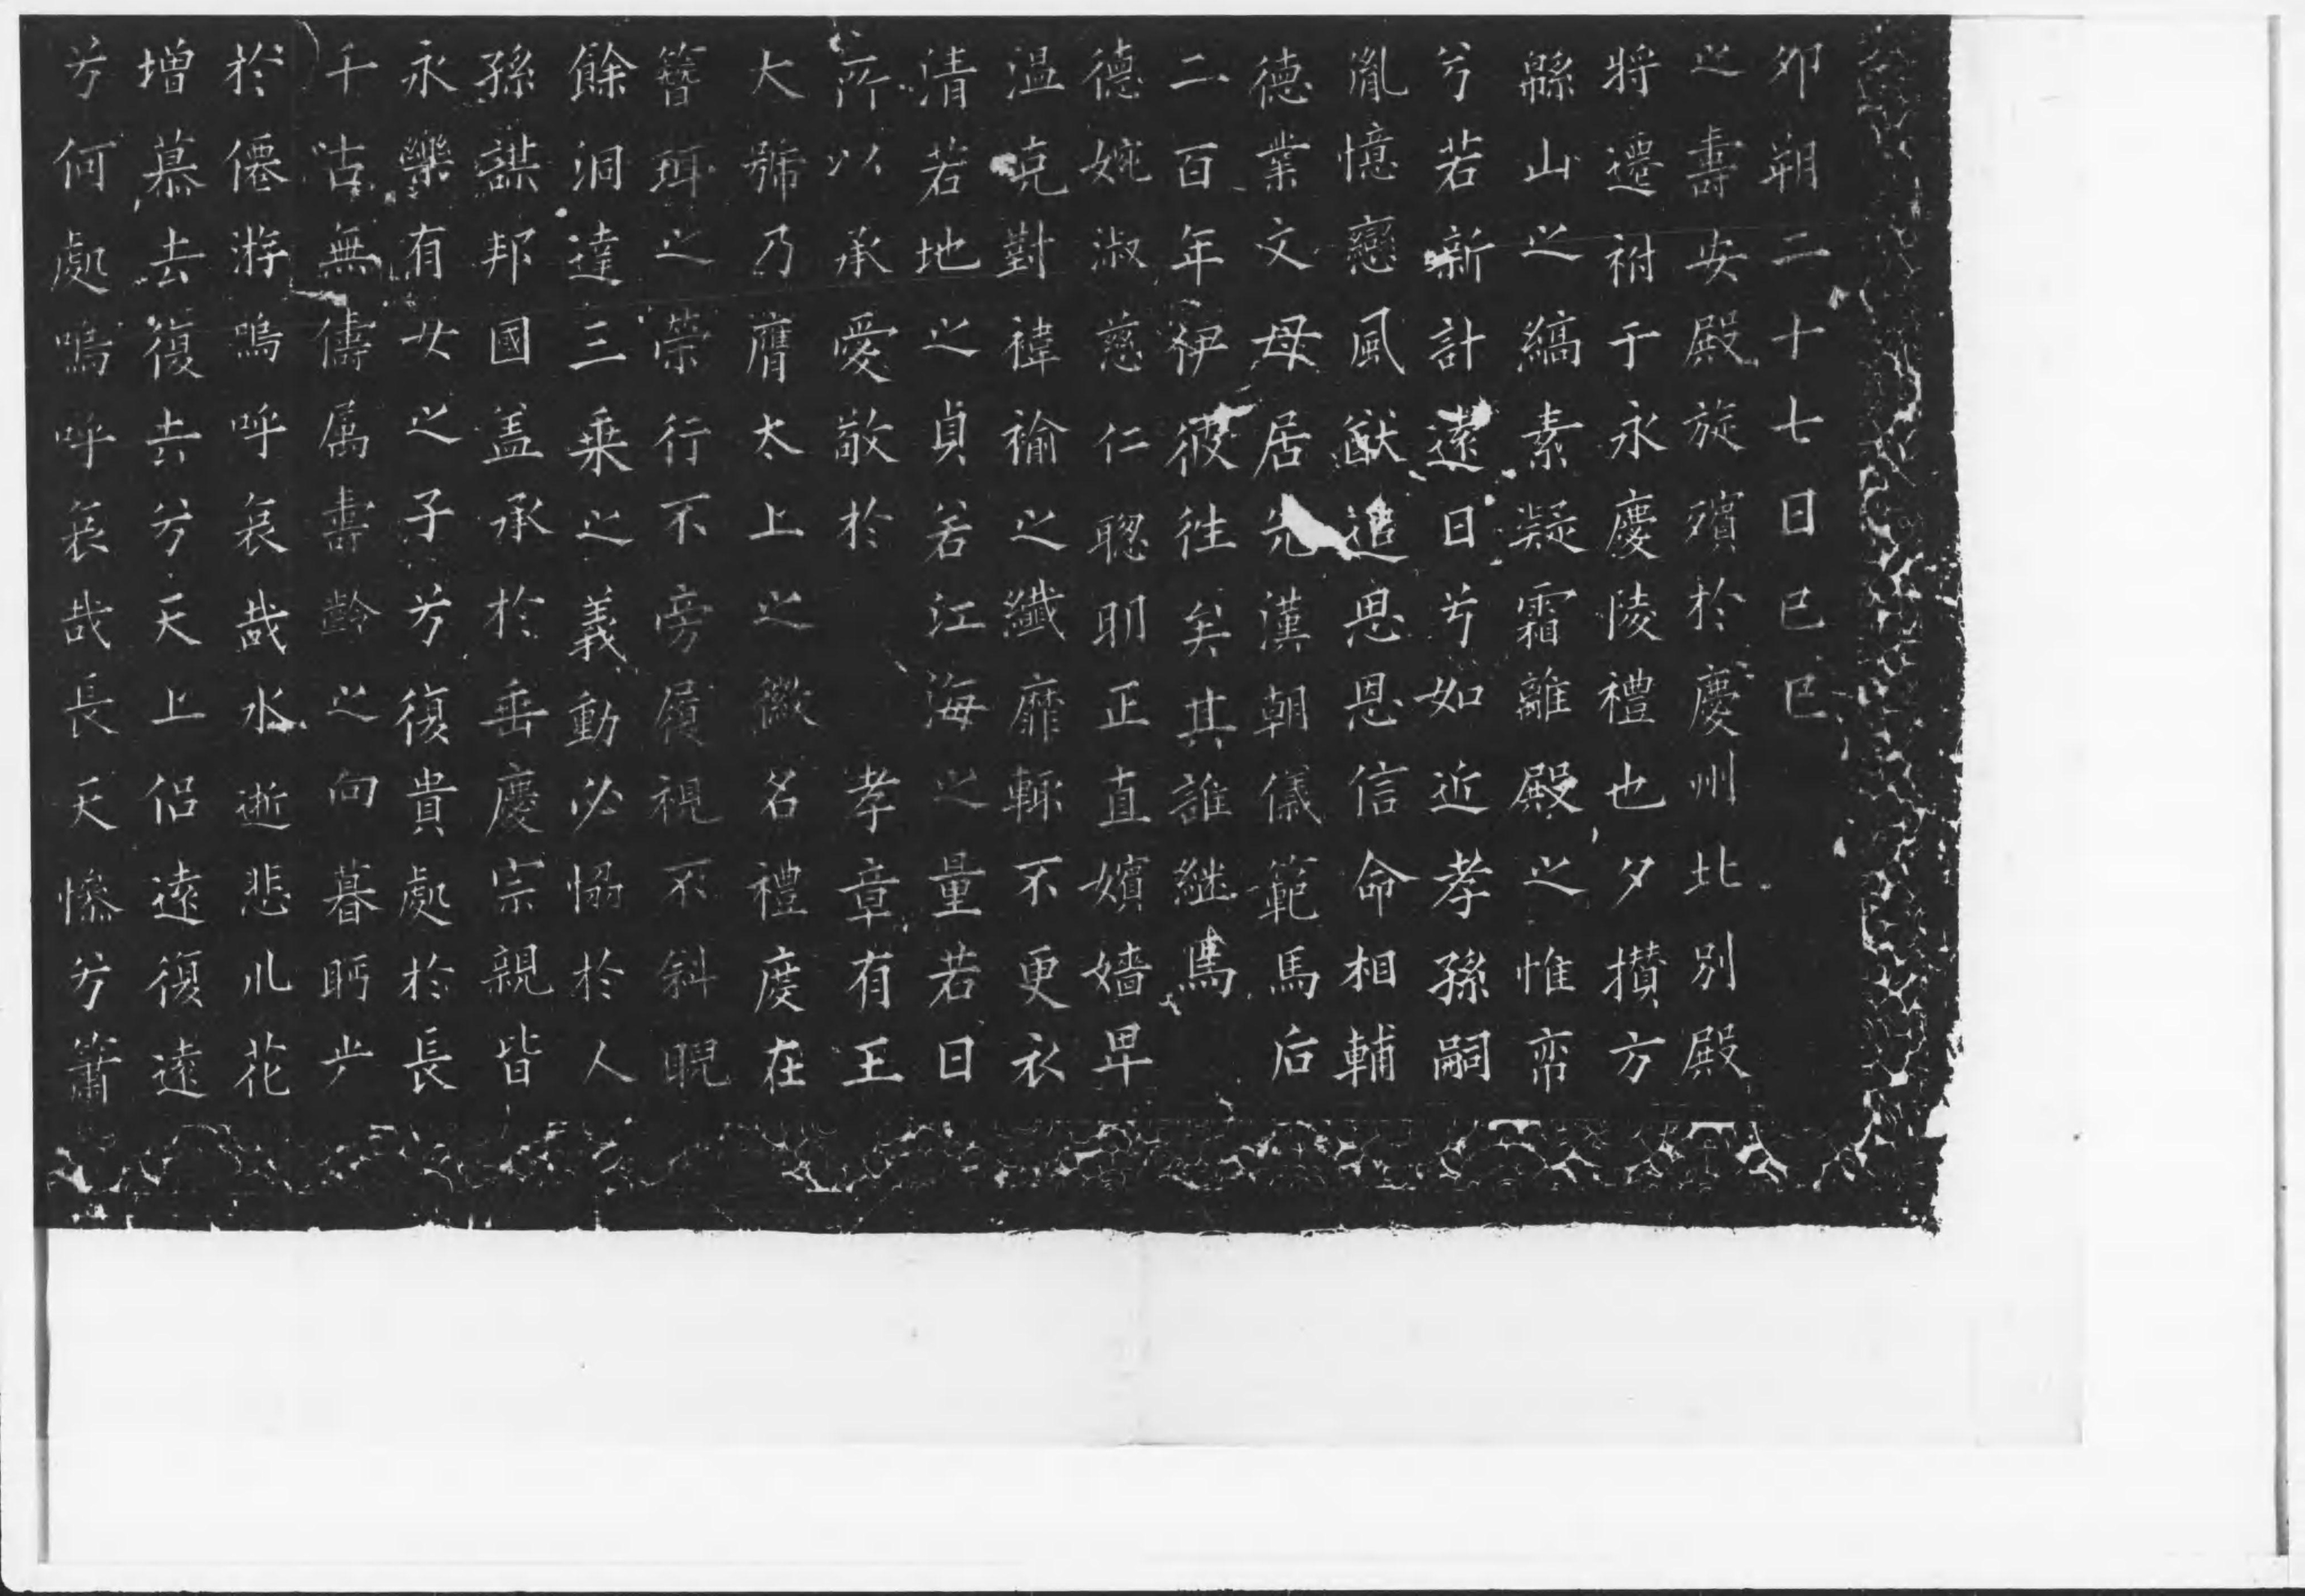 卯朔二十七日己巳
之壽安殿旋殯於慶州北別殿
將遷祔于永慶陵禮也夕攢方
緜山之縞素凝霜離殿之帷帟
兮若新計遠日兮如近孝孫嗣
胤憶戀風猷追思恩信命相輔
德業文母居先漢朝儀範馬后
二百年伊彼往矣其誰継焉
德婉淑慈仁聦明正直嬪嬙卑
温克對褘褕之纖靡輙不更衣
清若地之貞若江海之量若日
所以承愛敬於　　孝章有王
大號乃膺太上之徽名禮度在
簪珥之榮行不旁履視不斜睨
餘洞達三乗之義動必惻於人
孫謀邦國盖承於垂慶宗親皆
永樂有女之子兮復貴處於長
千古無儔属壽齡之向暮眄步
於僊游嗚呼哀哉水逝悲川花
增慕去復去兮天上侣遠復遠
兮何處嗚呼哀哉長天慘兮簫